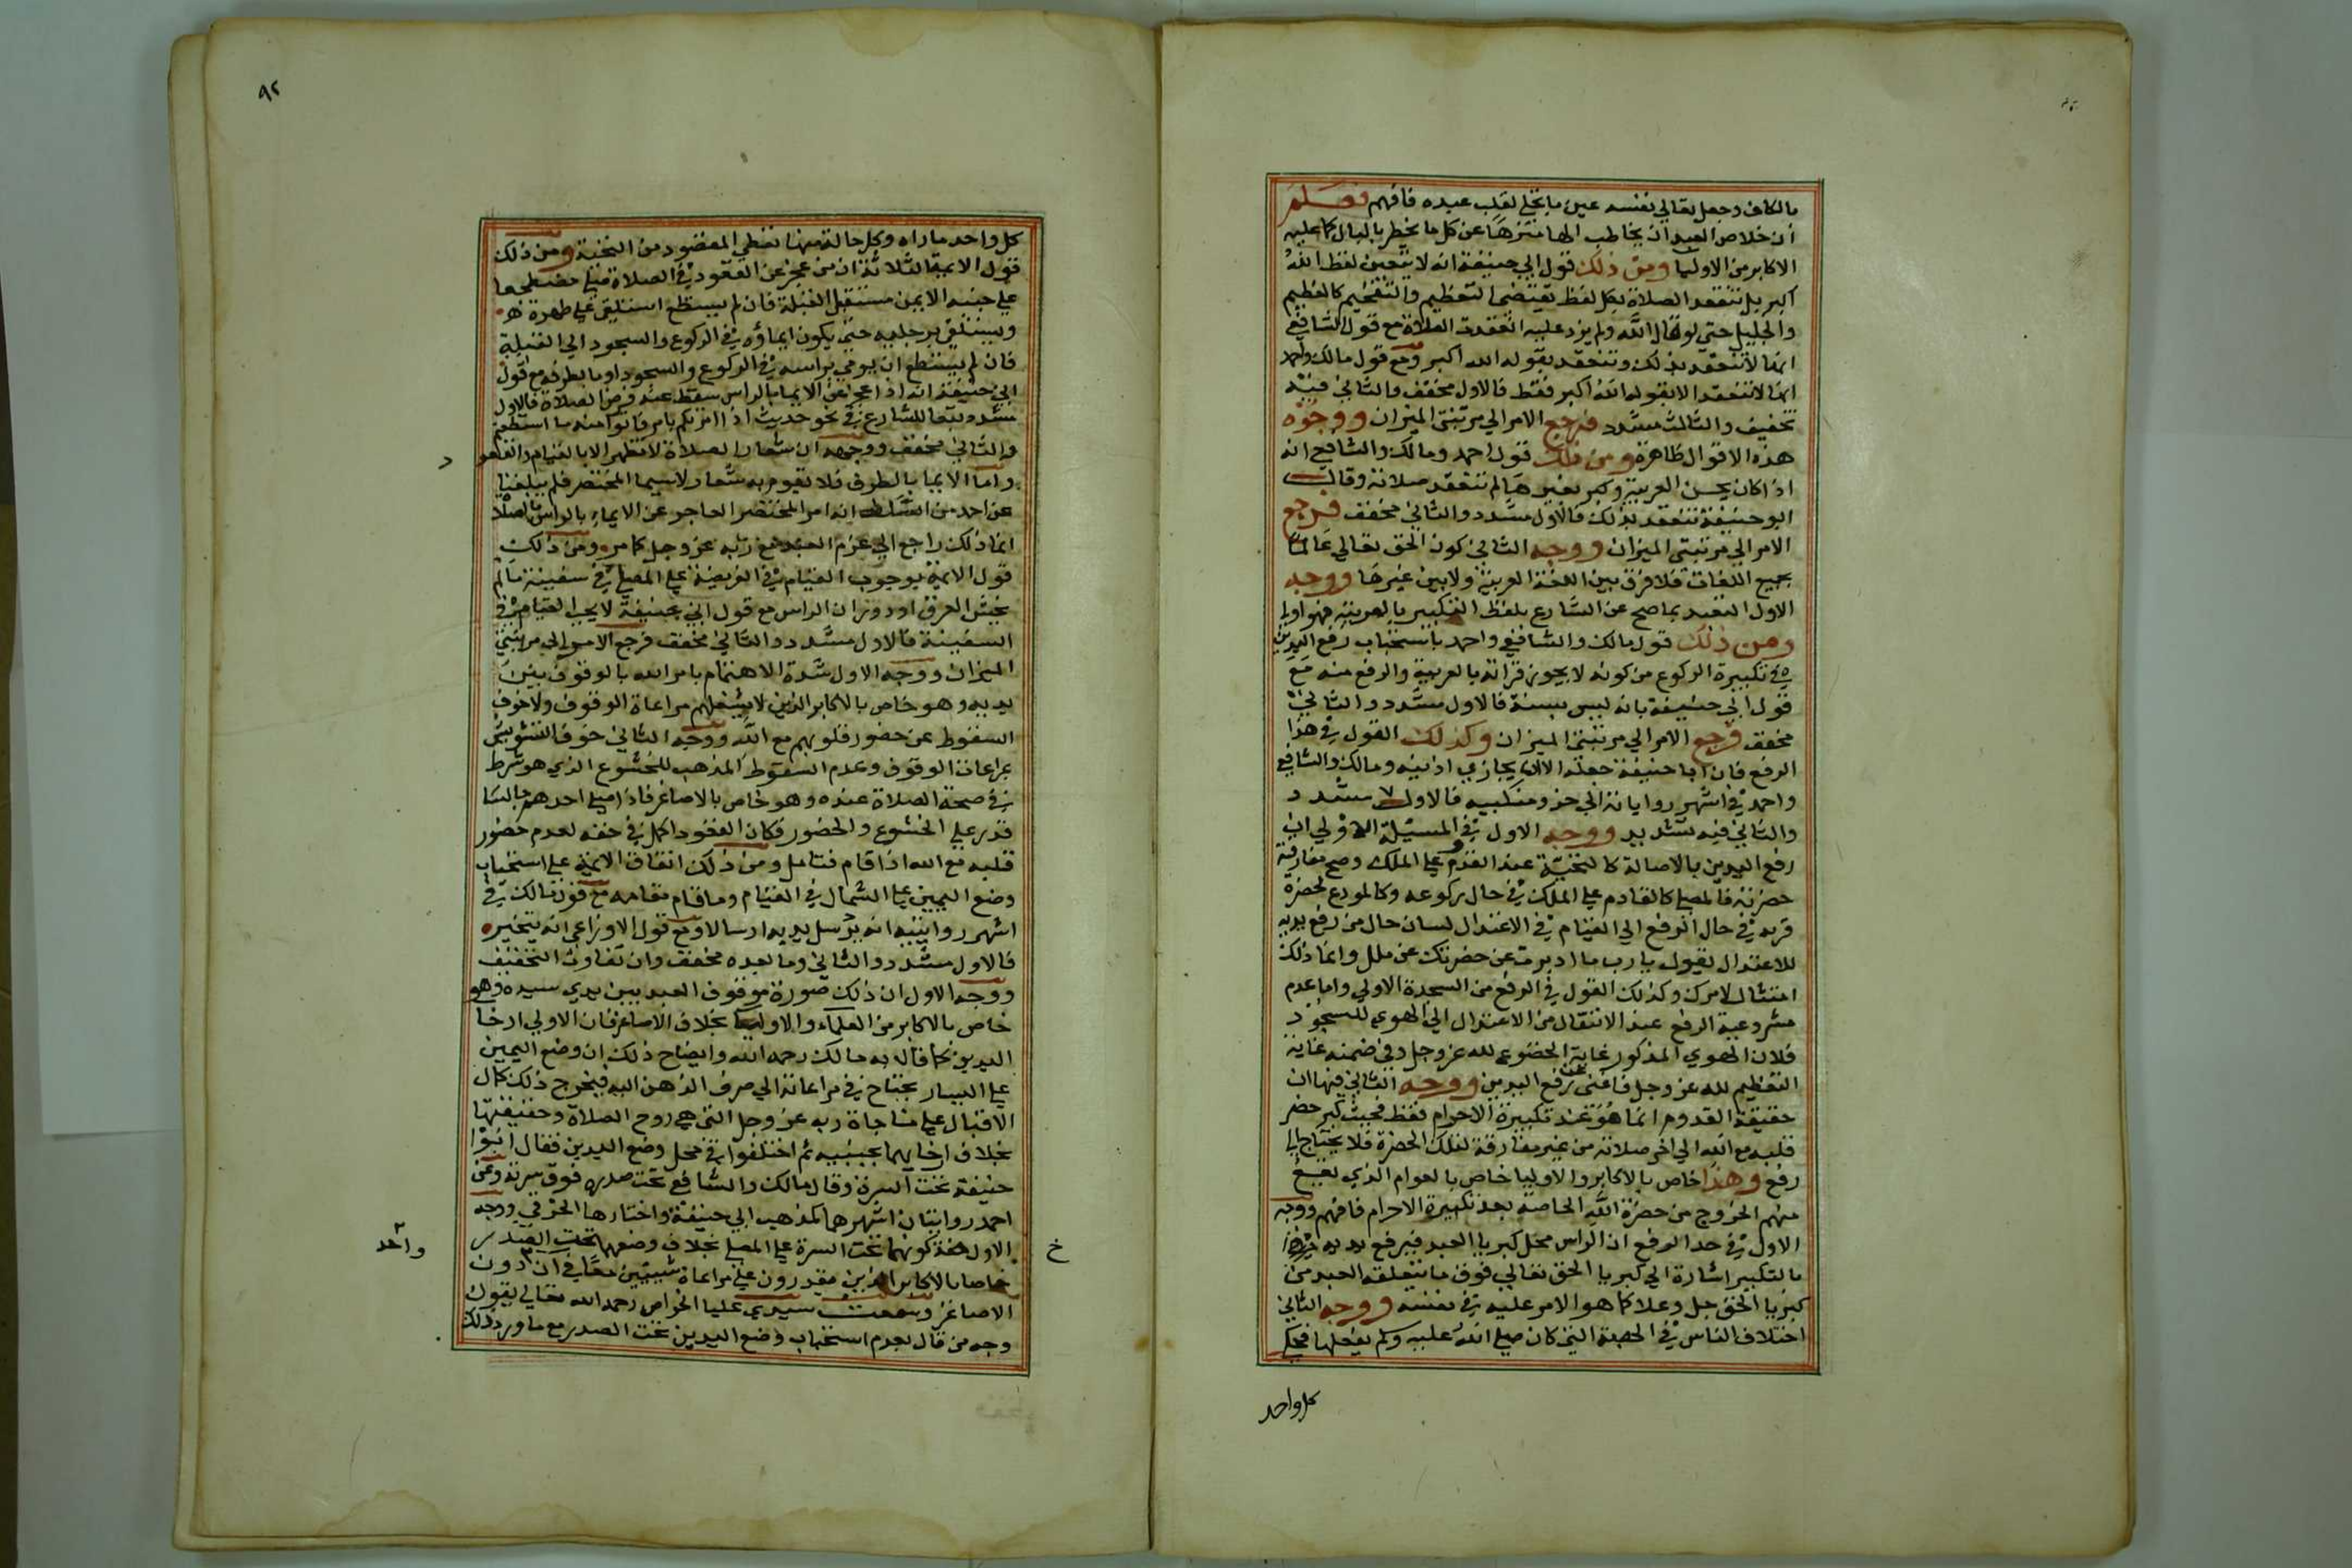 مالكاف وجعل تعالي نفسه عين ما تجلي لقلب عبده فافهم فعلم
ان خلاص العبد ان يخاطب الها منزها عن كل ما يخطر بالبال كما عليه
الاكابر من الاوليا ومن ذلك قول ابي حنيفة انه لا يتعين لفظ الله
اكبر بل تنعقد الصلاة بكل لفظ يقتضي التعظيم والتفخيم كالعظيم
والجليل حتى لو قال الله ولم يزد عليه انعقدت الصلاة مع قول الشافعي
انها لا تنعقد بذلك وتنعقد بقوله الله اكبر ومع قول مالك واحمد
انها لا تنعقد الا بقوله الله اكبر فقط فالاول مخفف والثاني فيه
تخفيف والثالث مشدد فرجع الامر الي مرتبتي الميزان ووجوه
هذه الاقوال ظاهرة ومن ذلك قول احمد ومالك والشافعي انه
اذا كان يحسن العربية وكبر بغيرها لم تنعقد صلاته وقال
ابو حنيفة تنعقد بذلك فالاول مشدد والثاني مخفف فرجع
الامر الي مرتبتي الميزان ووجه الثاني كون الحق تعالي عالما
بجميع اللغات فلا فرق بين اللغة العربية ولا بين غيرها ووجه
الاول التقيد بما صح عن الشارع بلفظ التكبير بالعربية فهو اولي
ومن ذلك قول مالك والشافعي واحمد باستحباب رفع اليدين
في تكبيرة الركوع من كونه لا يجوز قراته بالعربية والرفع منه مع
قول ابي حنيفة بانه ليس بسنة فالاول مشدد والثاني
مخفف فرجع الامر الي مرتبتي الميزان وكذلك القول في هذا
الرفع فان ابا حنيفة جعله الان يحاذي اذنيه ومالك والشافعي
واحمد في اشهر رواياته الي حذو منكبيه فالاول مشدد
والثاني فيه تشديد ووجه الاول في المسئلة الاولي ان
رفع اليدين بالاصالة كالتحية عند القدوم علي الملك وصح مفارقة
حضرته فالمصلي كالقادم علي الملك في حال ركوعه وكالمودع لحضرة
قربه في حال الرفع الي القيام في الاعتدال لسان حال من رفع يديه
للاعتدال يقول يا رب ما ادبرت عن حضرتك عن ملل وانما ذلك
امتثال لامرك وكذلك القول في الرفع من السجدة الاولي واما عدم
مشروعية الرفع عند الانتقال من الاعتدال الي الهوي للسجود
فلان الهوي المذكور غاية الخضوع لله عز وجل وفي ضمنه غاية
التعظيم لله عز وجل فاغني عن رفع اليدين ووجه الثاني فيها ان
حقيقة القدوم انما هو عند تكبيرة الاحرام فقط فحيث كبر حضر
قلبه مع الله الي اخر صلاته من غير مفارقة لتلك الحضرة فلا يحتاج الي
رفع وهذا خاص بالاكابر والاوليا خاص بالعوام الذي يقع
منهم الخروج من حضرة الله الخاصة بعد تكبيرة الاحرام فافهم ووجه
الاول في حد الرفع ان الراس محل كبريا العبد فيرفع يديه
بالتكبير اشارة الي كبريا الحق تعالي فوق ما يتعلقه العبد من
كبريا الحق جل وعلا كما هو الامر عليه في نفسه ووجه الثاني
اختلاف الناس في الحصة التي كان صلي الله عليه وسلم يفعلها فحكي
كل واحد
٩٢
كل واحد ما راه وكل حالة منها تعطي المقصود من التحية ومن ذلك
قول الايمة الثلاثة ان من عجز عن القعود في الصلاة صلي مضطجعا
علي جنبه الايمن مستقبل القبلة فان لم يستطع استلقي علي ظهره
ويستلقي برجليه حتي يكون ايماؤه في الركوع والسجود الي القبلة
فان لم يستطع ان يومي براسه في الركوع والسجود اوما بطرفه مع قول
ابي حنيفة انه اذا عجز عن الايما بالراس سقط عنه فرض الصلاة فالاول
مشدد تبعا للشارع في نحو حديث اذا امرتكم بامر فاتوا منه ما استطعتم
والثاني مخفف ووجهه ان شعار الصلاة لا تظهر الا بالقيام والقعود
واما الايما بالطرف فلا تقوم به شعار لاسيما المحتضر فلم يبلغنا
عن احد من السلف انه امر المحتضر العاجز عن الايماء بالراس بالصلاة
انما ذلك راجع الي عزم العبد مع ربه عز وجل كما مر ومن ذلك
قول الائمة بوجوب القيام في الفريضة علي المصلي في سفينة ما لم
يخش الغرق او دوران الراس مع قول ابي حنيفة لا يجب القيام في
السفينة فالاول مشدد والثاني مخفف فرجع الامر الي مرتبتي
الميزان ووجه الاول شدة الاهتمام بامر الله بالوقوف بين
يديه وهو خاص بالاكابر الذين لا يشغلهم مراعاة الوقوف ولا خوف
السقوط عن حضور قلوبهم مع الله ووجه الثاني خوف التشويش
بمراعاة الوقوف وعدم السقوط المذهب للخشوع الذي هو شرط
في صحة الصلاة عنده وهو خاص بالاصاغر فاذا صلي احدهم جالسا
قدر علي الخشوع والحضور فكان القعود اكمل في حقه لعدم حضور
قلبه مع الله اذا قام فتامل ومن ذلك اتفاق الائمة علي استحباب
وضع اليمين علي الشمال في القيام وما قام مقامه مع قول مالك في
اشهر روايتيه انه يرسل يديه ارسالا ومع قول الاوزاعي انه يتخير
فالاول مشدد والثاني وما بعده مخفف وان تفاوت التخفيف
ووجه الاول ان ذلك صورة موقوف العبد بين يدي سيده وهو
خاص بالاكابر من العلماء والاوليا بخلاف الاصاغر فان الاولي ارخا
اليدين كما قال به مالك رحمه الله وايضاح ذلك ان وضع اليمين
علي اليسار يحتاج في مراعاته الي صرف الذهن اليه فيخرج ذلك كمال
الاقبال علي مناجاة ربه عز وجل التي هي روح الصلاة وحقيقتها
بخلاف ارخايهما بجنبيه ثم اختلفوا في محل وضع اليدين فقال ابو
حنيفة تحت السرة وقال مالك والشافعي تحت صدره فوق سرته وعن
احمد روايتان اشهرهما كمذهب ابي حنيفة واختارها الخرقي ووجه
الاول خفة كونهما تحت السرة علي المصلي بخلاف وضعهما تحت الصدر
خاصا بالاكابر الذين يقدرون علي مراعاة شيئين معا في ان دون
الاصاغر وسمعت سيدي عليا الخواص رحمه الله تعالي يقول
وجه من قال بعدم استحباب وضع اليدين تحت الصدر مع ما ورد ذلك
د
خ
واحد